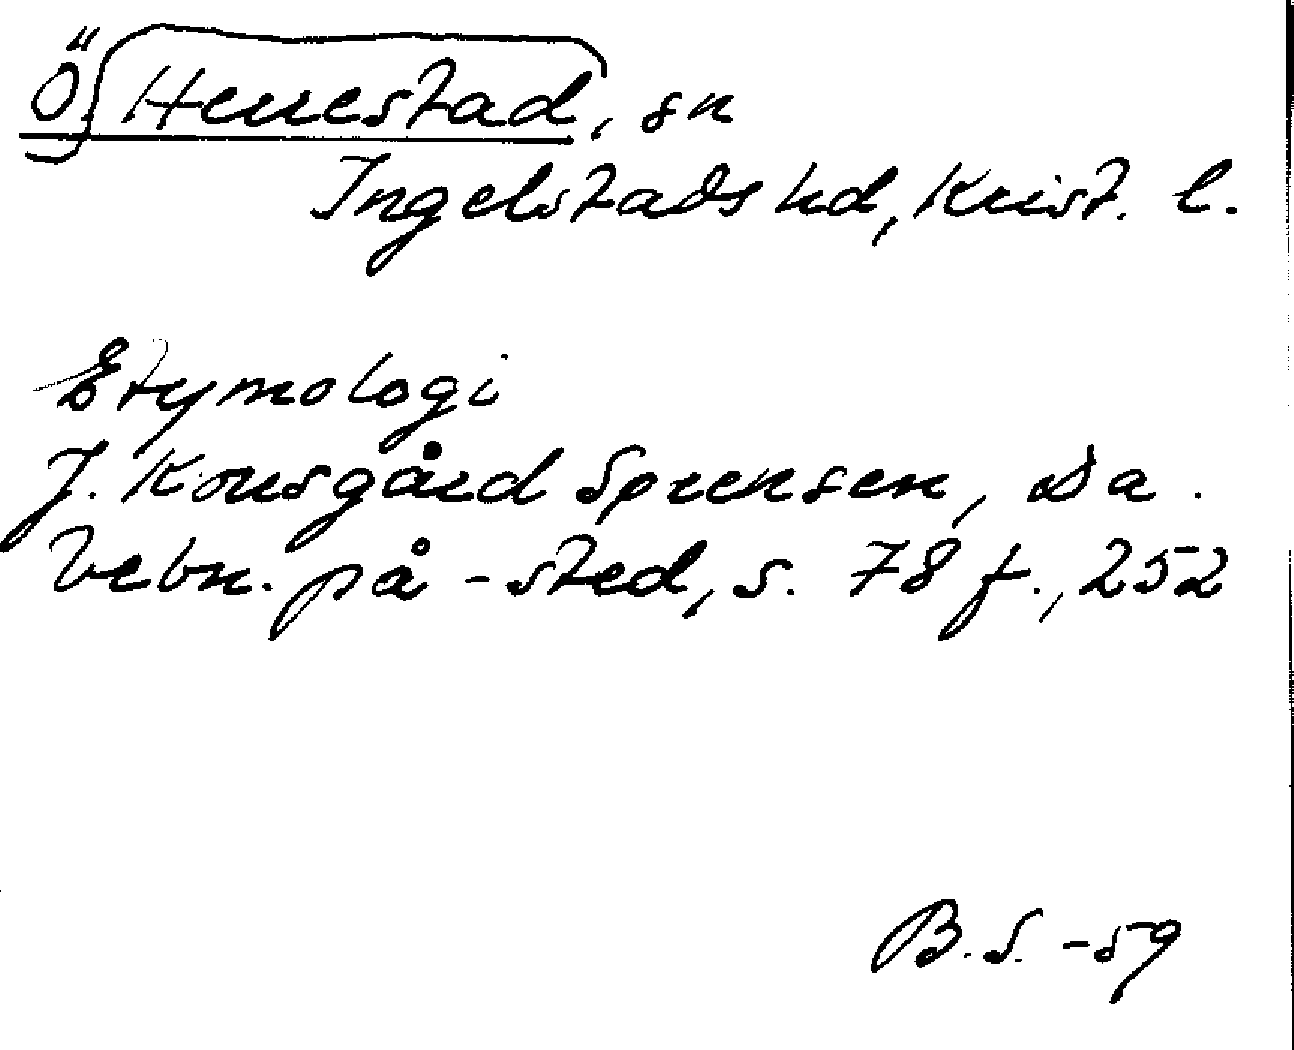 Ö. Herrestad, sn
Ingelstads hd, Krist. l.
Etymologi
J. Kousgård Sørensen, Da.
Bebn. på -sted, s. 78 f., 252
B.S. -59